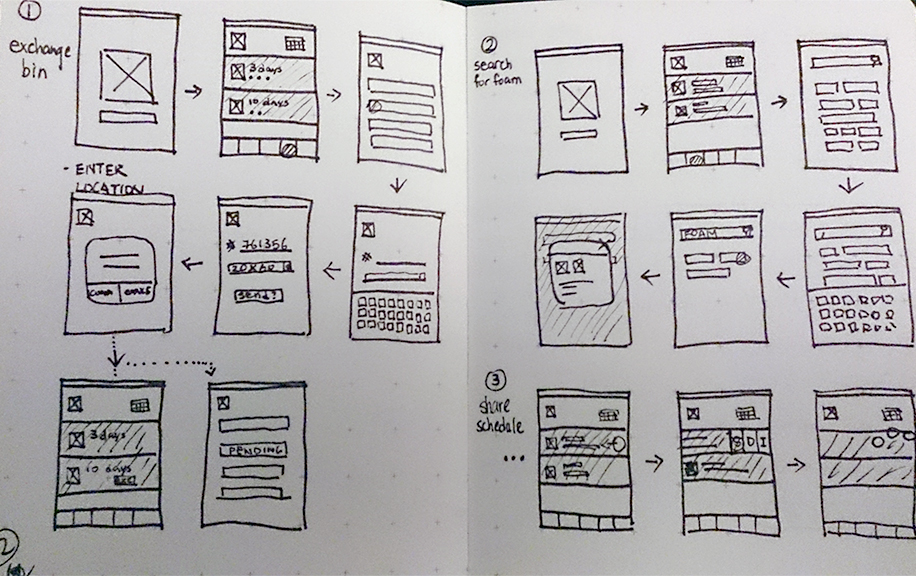 1
exchange
bin
3 days
10 days
- ENTER
LOCATION
* 761356
send?
*
3 days
10 days
PENDING
2
2
search
for foam
FOAM
3
share
schedule
...
S D I